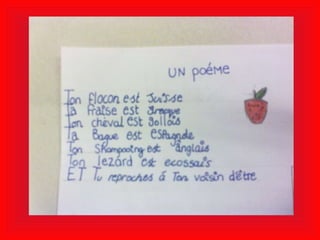 UN poéme
Ton flocon est Suisse
Ta fraise est Grecque
Ton cheval est gallois
Ta Bague est Espagnole
Ton Shampooing est anglais
Ton lezard est ecossais
ET Tu reproches à Ton voisin d'être